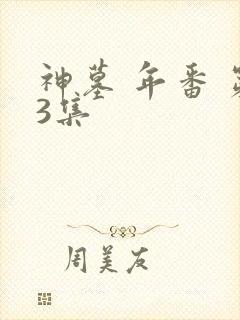 神墓 年番 第
3集
周美友